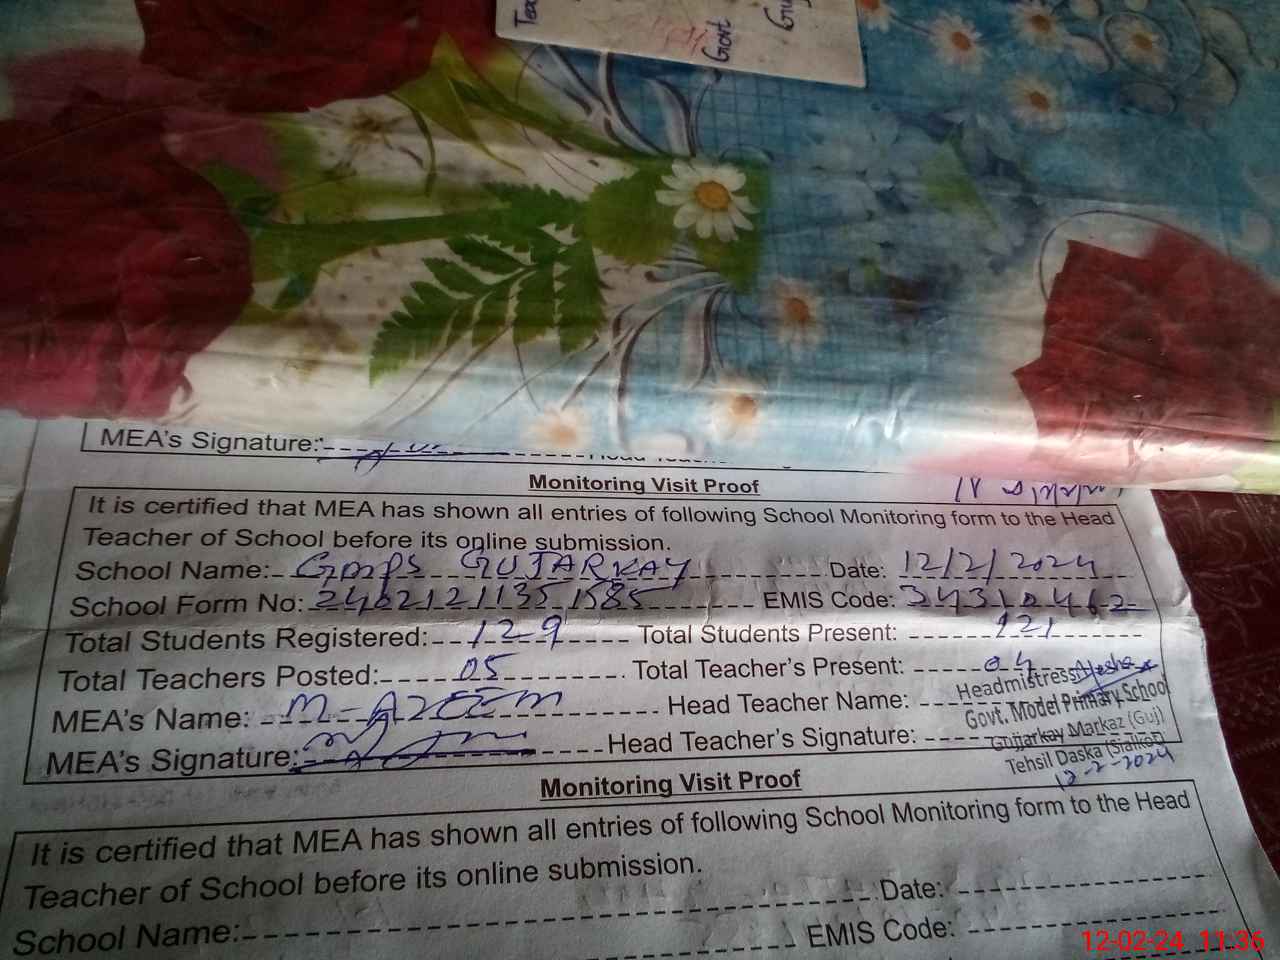 Govt
MEA's Signature:
Monitoring Visit Proof
It is certified that MEA has shown all entries of following School Monitoring form to the Head
Teacher of School before its online submission.
School Name: GMPS GUJARKAY Date: 12/2/2024
School Form No: 24021211351585 EMIS Code: 34310462
Total Students Registered: 129 Total Students Present: 121
Total Teachers Posted: 05 Total Teacher's Present: 04
MEA's Name: M-AZEEM Head Teacher Name:
MEA's Signature: Head Teacher's Signature:
Headmistress
Govt. Model Primary School
Gujjarkay Markaz (Guj)
Tehsil Daska (Sialkot)
12-2-2024
Monitoring Visit Proof
It is certified that MEA has shown all entries of following School Monitoring form to the Head
Teacher of School before its online submission.
School Name: Date:
EMIS Code:
12-02-24 11:36